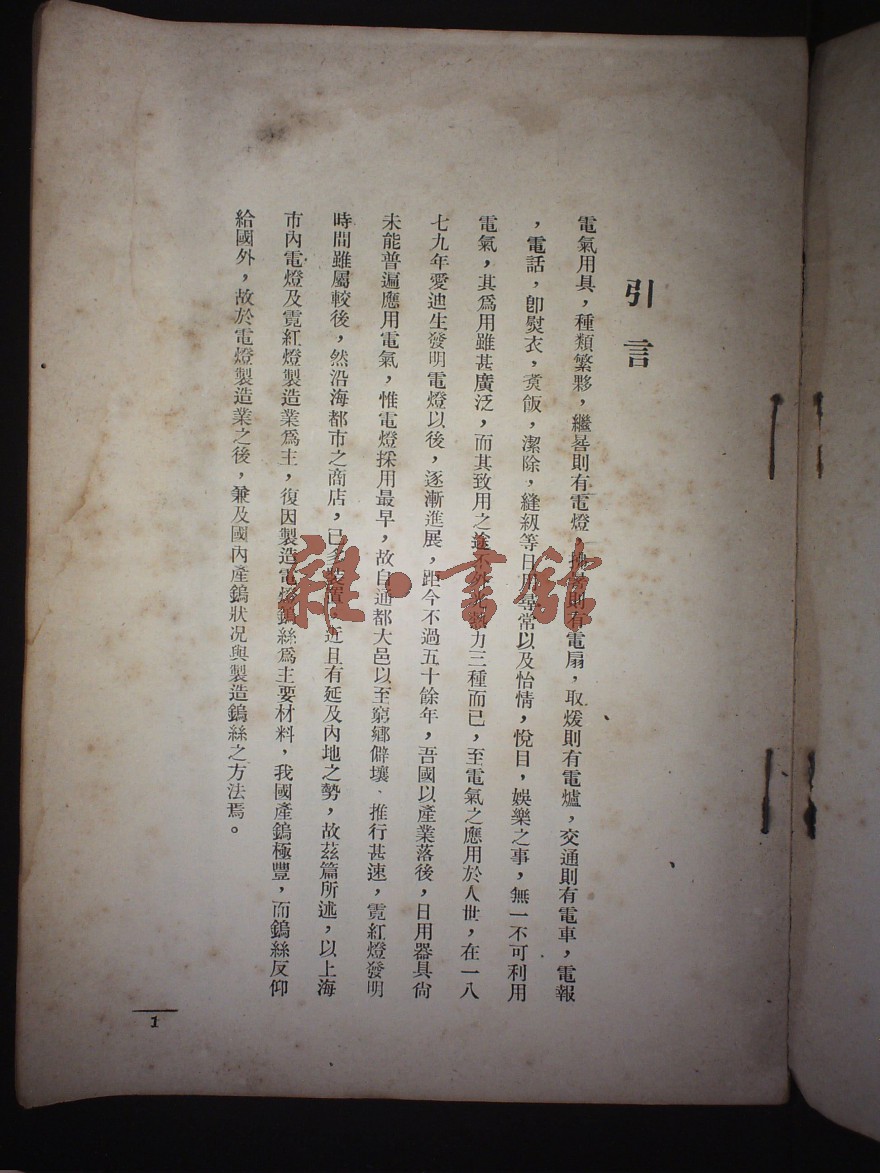 引言
電氣用具，種類繁夥，繼晷則有電燈，拂暑則有電扇，取煖則有電爐，交通則有電車，電報
，電話，卽熨衣，煑飯，潔除，縫紉等日用尋常以及怡情，悅目，娛樂之事，無一不可利用
電氣，其爲用雖甚廣泛，而其致用之途不外光熱力三種而已，至電氣之應用於人世，在一八
七九年愛迪生發明電燈以後，逐漸進展，距今不過五十餘年，吾國以產業落後，日用器具尙
未能普遍應用電氣，惟電燈採用最早，故自通都大邑以至窮鄉僻壤、推行甚速，霓紅燈發明
時間雖屬較後，然沿海都市之商店，已多裝置，近且有延及內地之勢，故茲篇所述，以上海
市內電燈及霓紅燈製造業爲主，復因製造電燈鎢絲爲主要材料，我國產鎢極豐，而鎢絲反仰
給國外，故於電燈製造業之後，兼及國內產鎢狀况與製造鎢絲之方法焉。
1
雜·書館